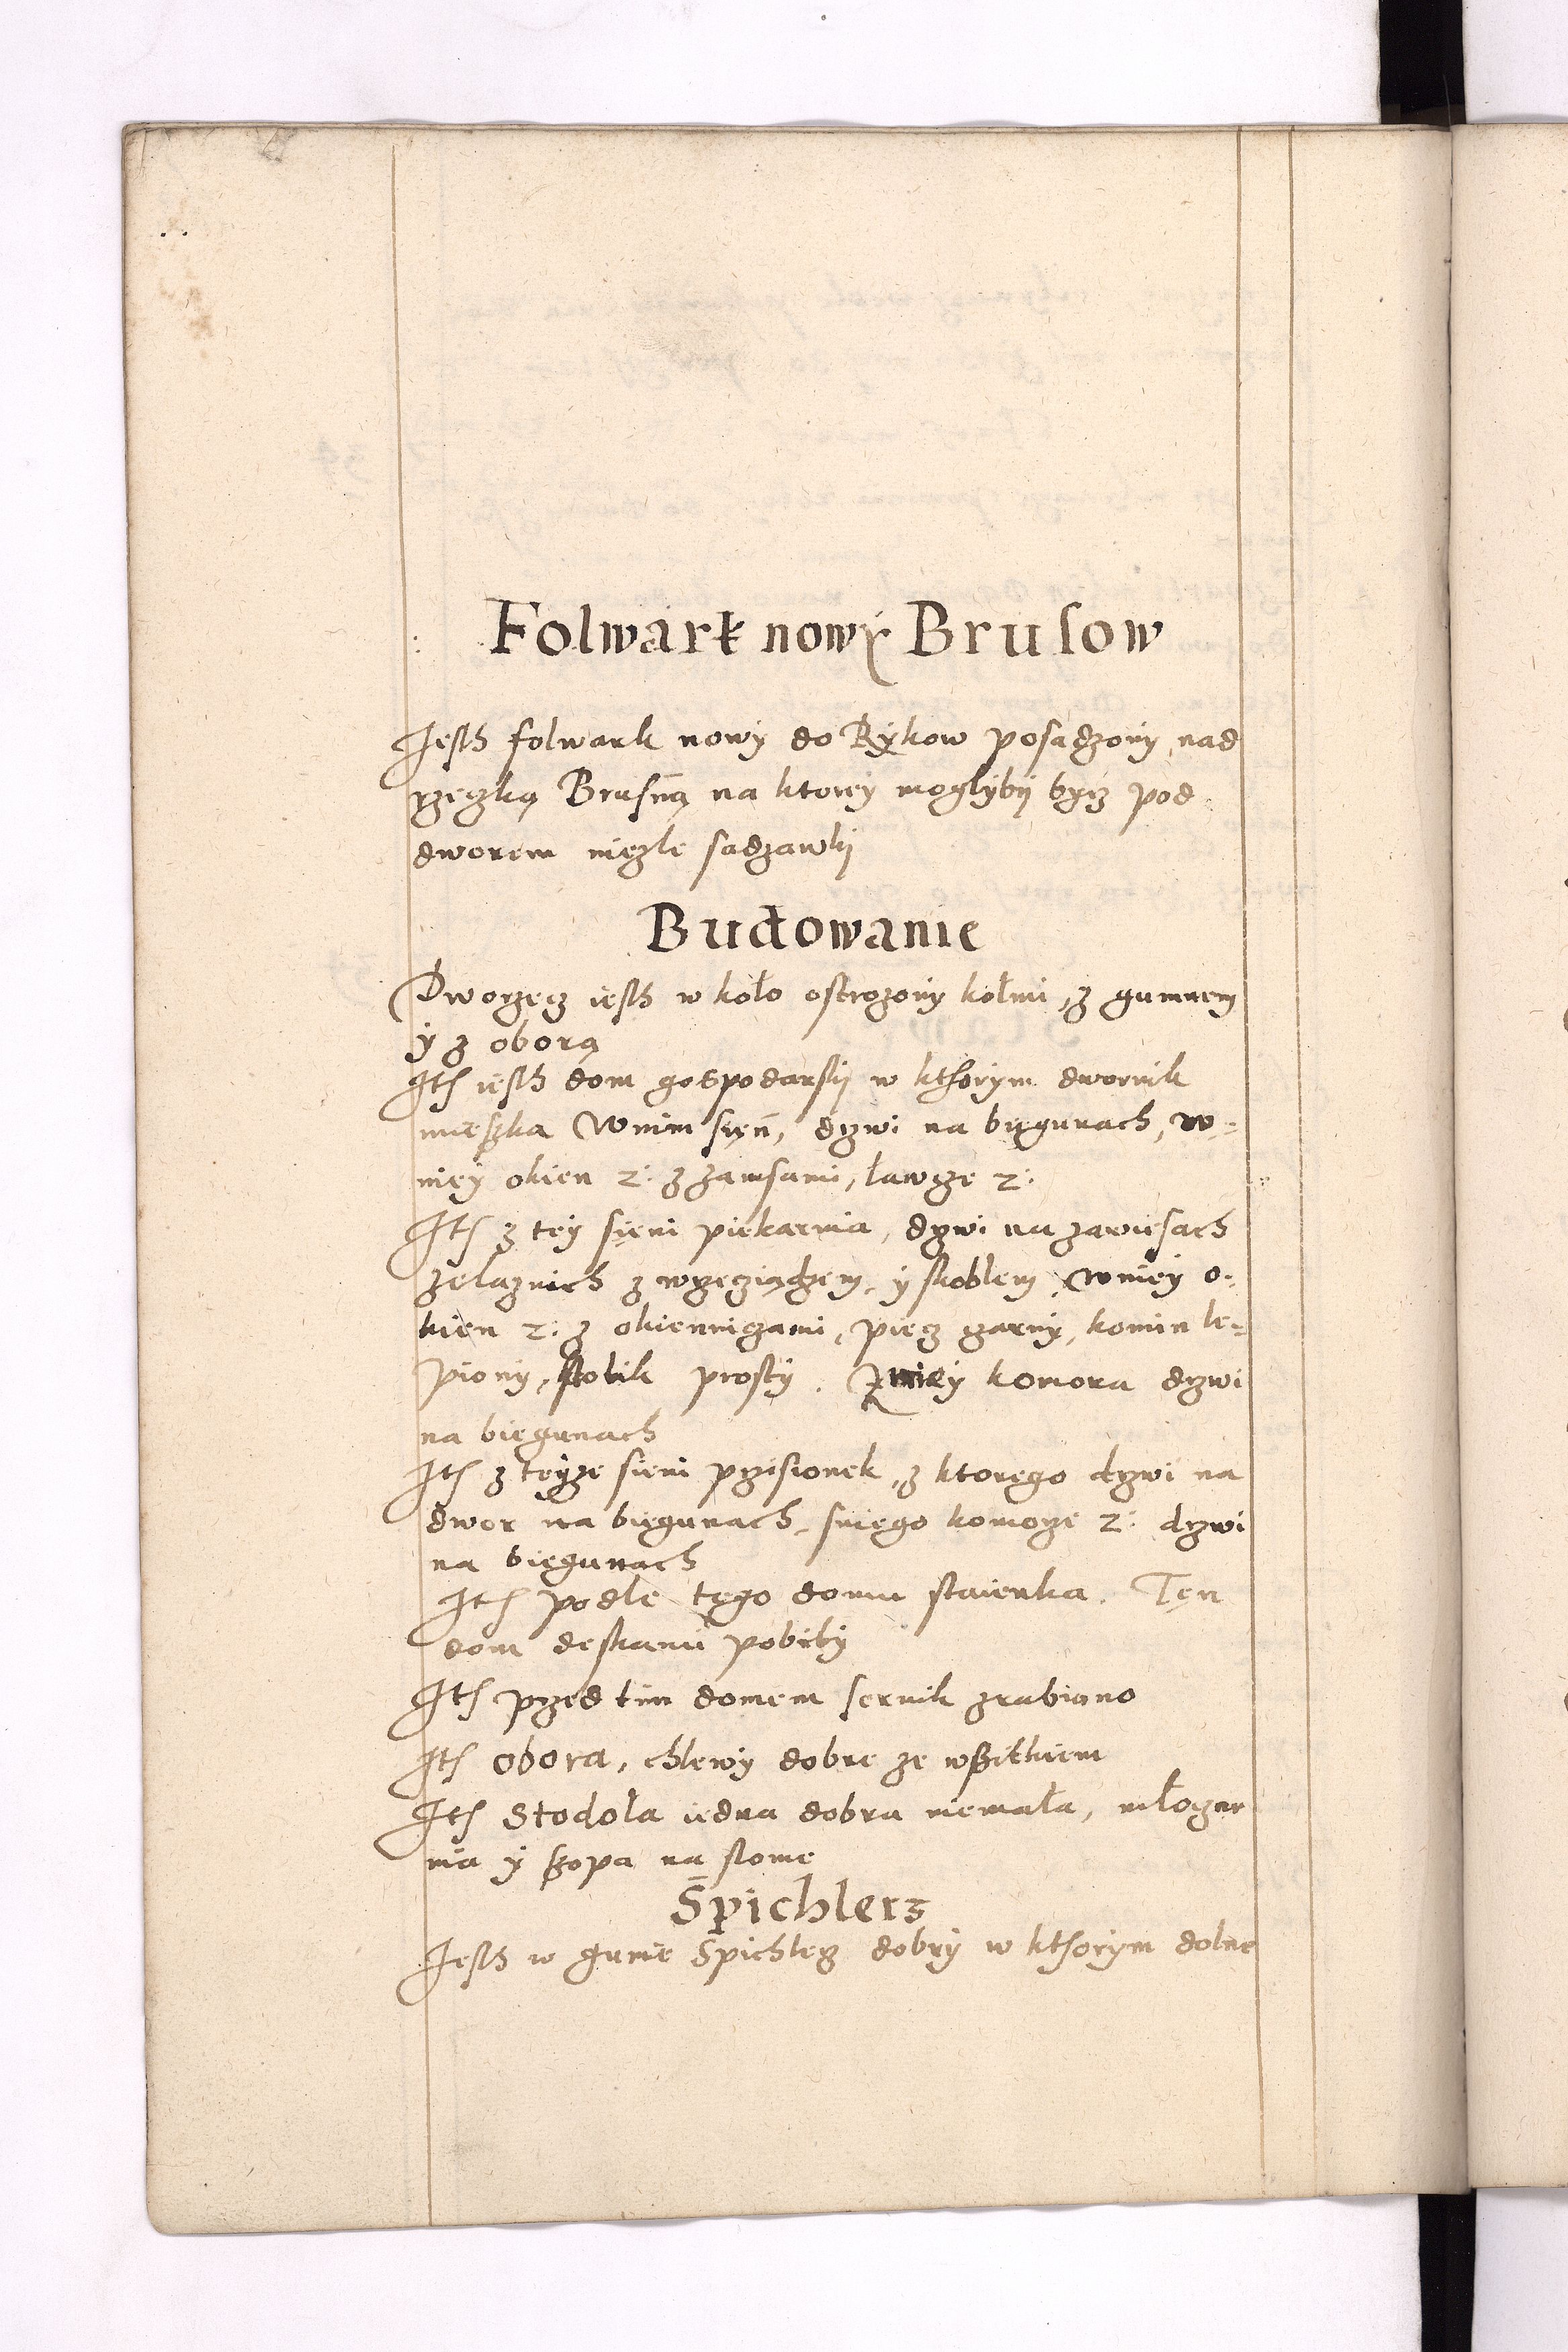 Folwark nowy Brusow
Jesth folwark nowy do Rykow posadzony nad
rzeczką Brusną na ktorey mogłyby bycz pod
dworem niezle sadzawki
Budowanie
Dworzecz iesth w koło ostrozony kołmi, z gumnem
y z oborą
Ith iesth dom gospodarsky w kthorym dwornik
mieszka W nim sień, drzwi na biegunach, w-
niey okien 2: z zamsami, ławcze 2:
Ith z tey sieni piekarnia, drzwi na zawiesach
zelaznich z wrzecziądzem, y skoblem, W niey o-
kien 2: z okienniczami, piecz czarny, komin le-
piony, stolik prosty. Z niey komora drzwi
na biegunach
Ith z teyze sieni przisionek, z ktorego drzwi na
dwor na biegunach, s niego komorze 2: drzwi
na biegunach
Ith podle tego domu staienka. Ten
dom deskami pobity
Ith przed tim domem sernik zrabiano
Ith obora, chlewy dobre ze wszitkiem
Ith Stodola iedna dobra niemała, młoczar
nia y szopa na slome
Spichlerz
Jesth w gumie Spichlerz dobry w kthorym dolne